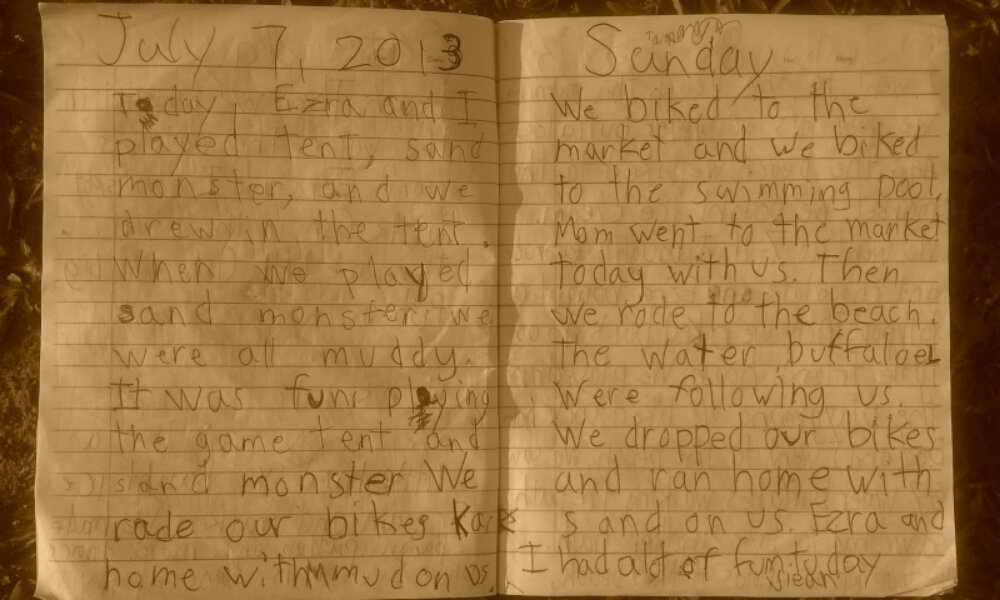 July 7, 2013
Today, Ezra and I
played tent, sand
monster, and we
drew in the tent.
When we played
sand monster we
were all muddy.
It was fun playing
the game tent and
sand monster We
rade our bikes
home with mud on us.
Sunday
We biked to the
market and we biked
to the swimming pool.
Mom went to the market
today with us. Then
we rode to the beach.
The water buffaloes
were following us.
We dropped our bikes
and ran home with
sand on us. Ezra and
I had alot of fun today